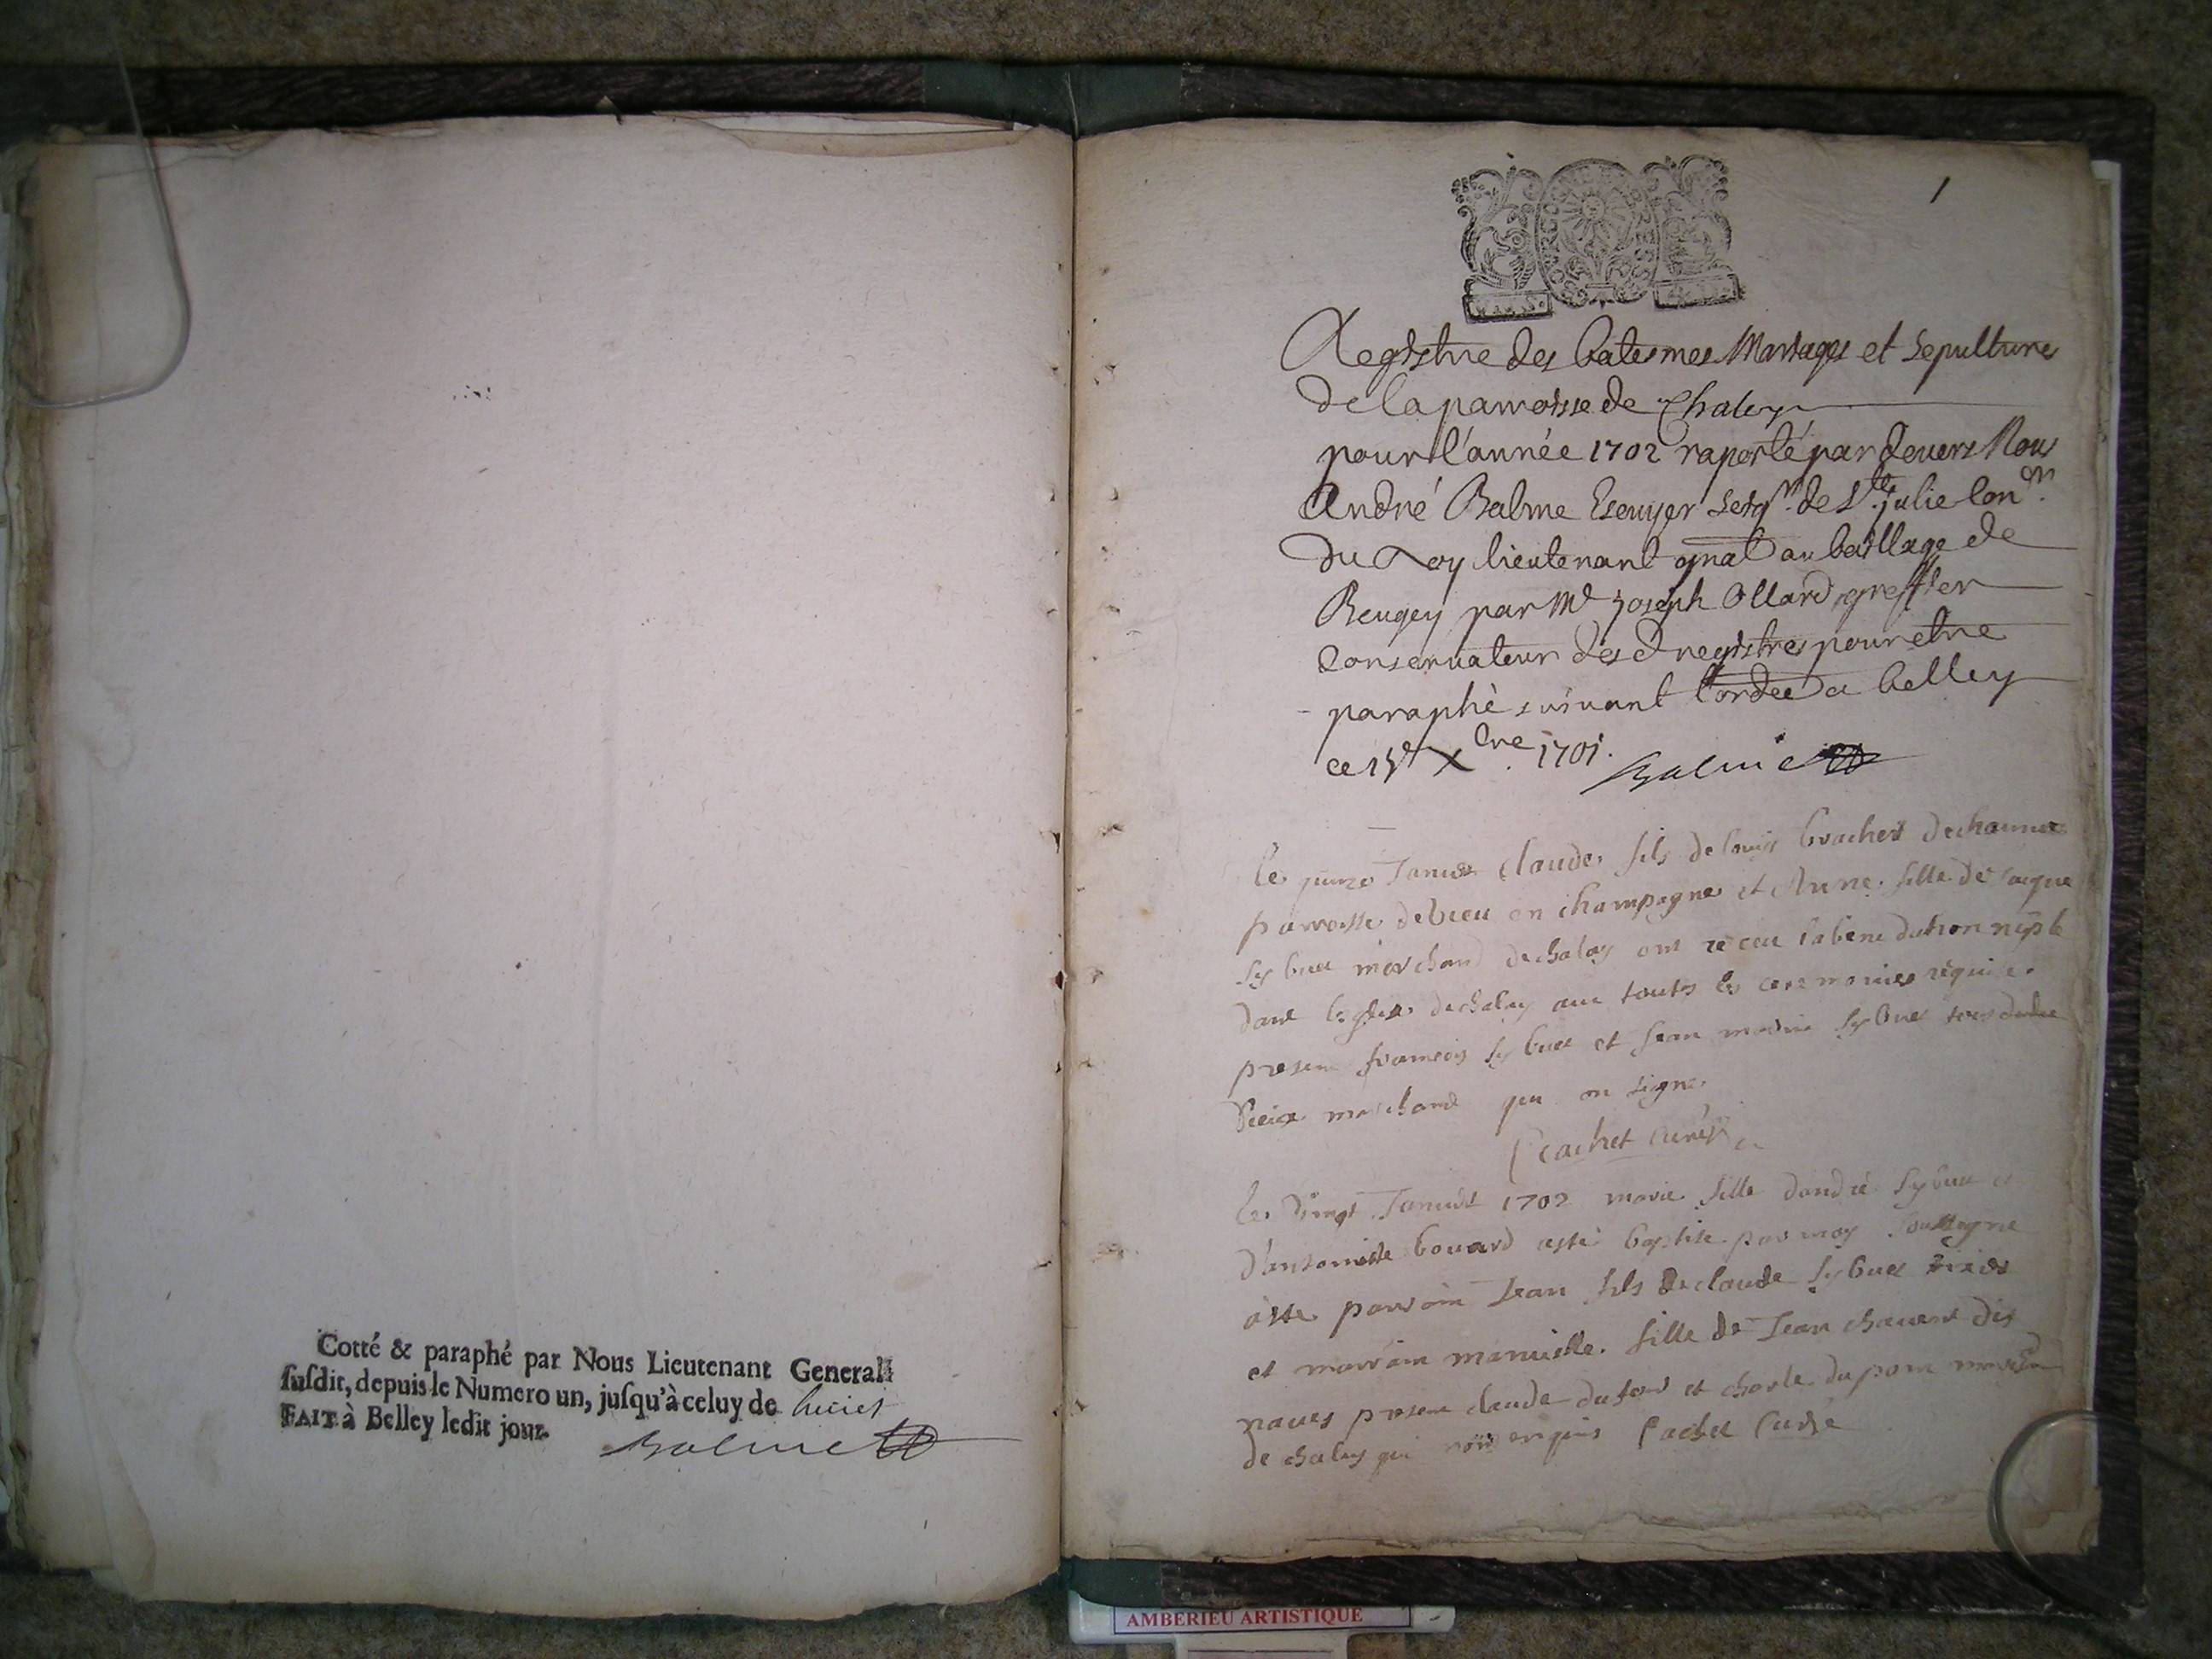 Cotté & paraphé par Nous Lieutenant General
susdit, depuis le Numero un, jusqu'à celuy de huict
FAIT à Belley ledit jour.
Balme
1
Registre des batesmes Mariages et sepulture
de la parroisse de Chaley
pour l'année 1702 raporté par devers Nous
André Balme Escuyer seigr. de Ste. julie Conr.
du Roy lieutenant gnal au baillage de
Beugey par Me joseph Ollard greffier
Conservateur des d registres pour etre
paraphé suivant l'ordce a belley
ce Xbre 1701. Balme
le Janvier claude fils de louis brachet de
parroisse de vieu en champagne et Anne fille de Jaque
Lybuet marchand de chaley ont receu la benediction
dans leglise de chaley avec toutes les ceremonies requise
present francois Lybuet et Jean Lybuet
marchand qui on signe
Cachet curé
le vingt Janvier 1702 marie fille dandré Lybuet et
d'antoinette bouard esté baptisé par moy soussigne
parrain Jean fils de claude Lybuet
et marraine fille de Jean chavent
present claude dufour et charle dupont
de chaley qui Cachet Curé
AMBERIEU ARTISTIQUE